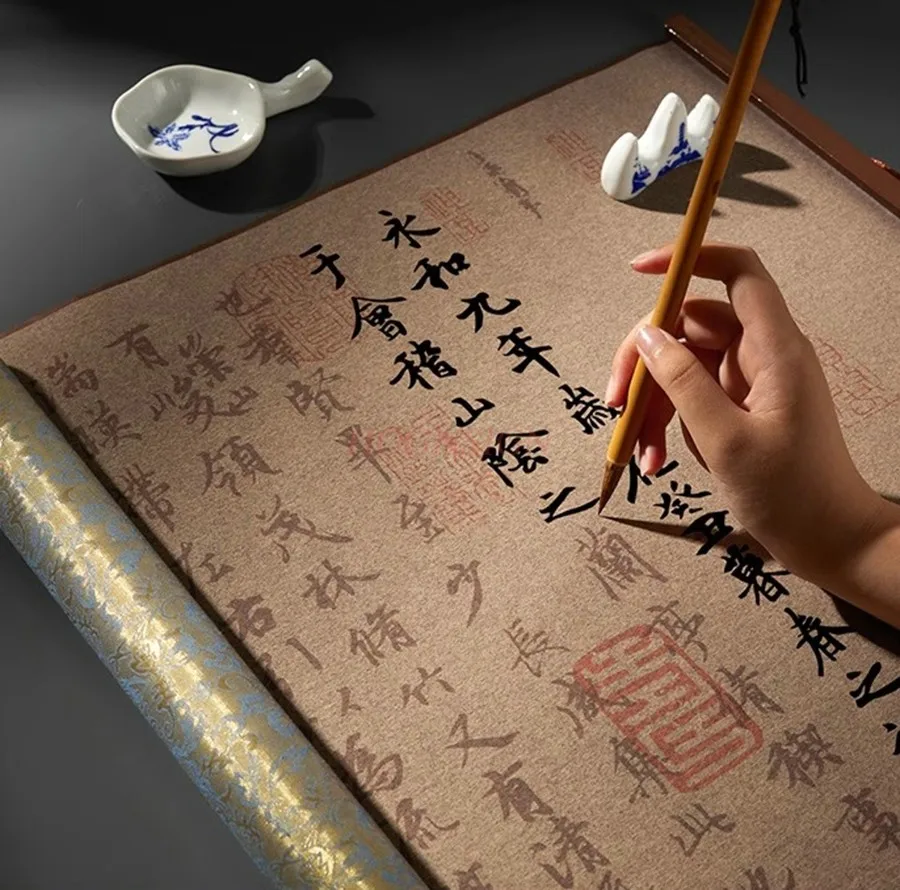 永和九年歲在癸丑暮春之
于會稽山陰之蘭亭脩禊事
也羣賢畢至少長咸集此
有崇山峻領茂林脩竹又有清
湍暎帶左右引以為流